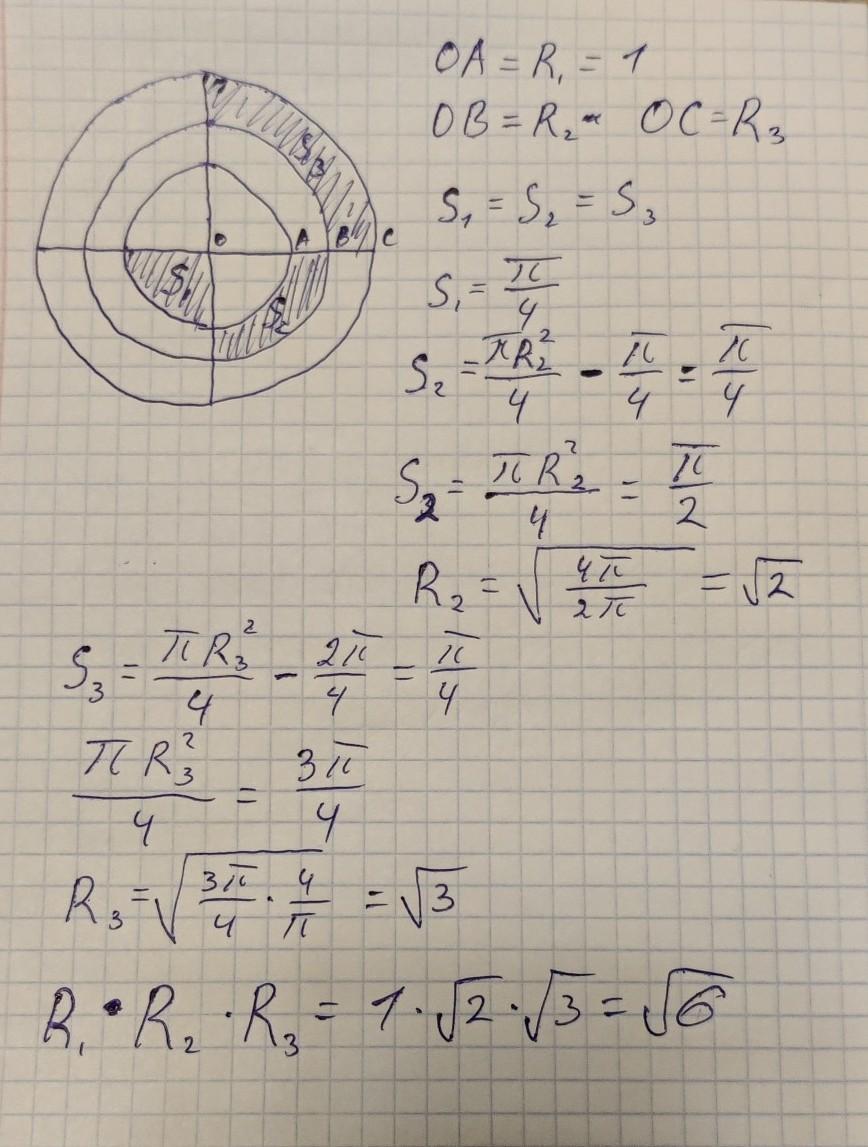 OA = R₁ = 1
OB = R₂ - OC = R₃
S₃
O A B C
S₁
S₂
S₁ = S₂ = S₃
S₁ = π/4
S₂ = πR₂²/4 - π/4 = π/4
S₂ = πR₂²/4 = π/2
R₂ = √(4π/2π) = √2
S₃ = πR₃²/4 - 2π/4 = π/4
πR₃²/4 = 3π/4
R₃ = √(3π/4 · 4/π) = √3
R₁ · R₂ · R₃ = 1 · √2 · √3 = √6